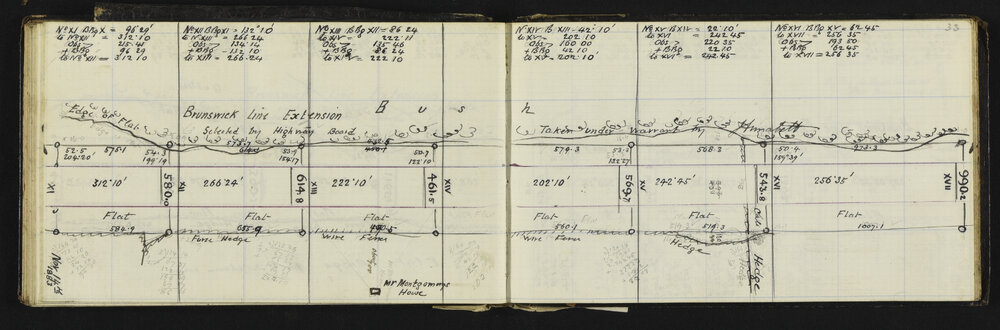 33
Nº XI B Brg X = 96° 29'
to Nº XII = 312° 10'
Obs = 215. 41
+ BBg 96 29
to Nº XII = 312 10
Nº XII B Brg XI = 132° 10'
to XIII = 266 24
Obs = 134. 14
+ BBg = 132. 10
to XIII = 266. 24
Nº XIII B Brg XII = 86 24
to XIV = 222. 11
Obs = 135 46
+ BBg = 86 24
to XIV = 222 10
Nº XIV B XIII - 42°. 10'
to XV = 202. 10
Obs = 160 00
+ BBg 42 10
to XV - 202. 10
Nº XV B XIV = 22°. 10'
to XVI = 242 45
Obs = 220 35
+ BBg 22 10
to XVI = 242. 45
Nº XVI B Brg XV = 62° 45
to XVII = 256 35
Obs = 193 50
+ BBg 62. 45
to XVII = 256 35
Edge of Flat
Brunswick Line Extension
Bush
Selected by Highway Board
Taken under Warrant by
52. 5
204° 20'
575. 1
54. 3
199° 19'
53. 9
154° 17'
50. 7
122° 10'
579. 3
53. 2
132° 27'
568. 3
50. 4
159° 39'
973. 3
XI
312° 10'
580. 0
XII
266° 24'
614. 8
XIII
222° 10'
461. 5
XIV
202° 10'
569. 7
XV
242° 45'
543. 8
XVI
256° 35'
990. 2
XVII
Flat
Flat
Flat
Flat
Flat
Flat
584. 9
655. 9
560. 1
519. 3
1007. 1
Furze Hedge
Wire Fence
Wire Fence
Hedge
Old
Hedge
Nov 14th
1883
Mr Montgomerys
House